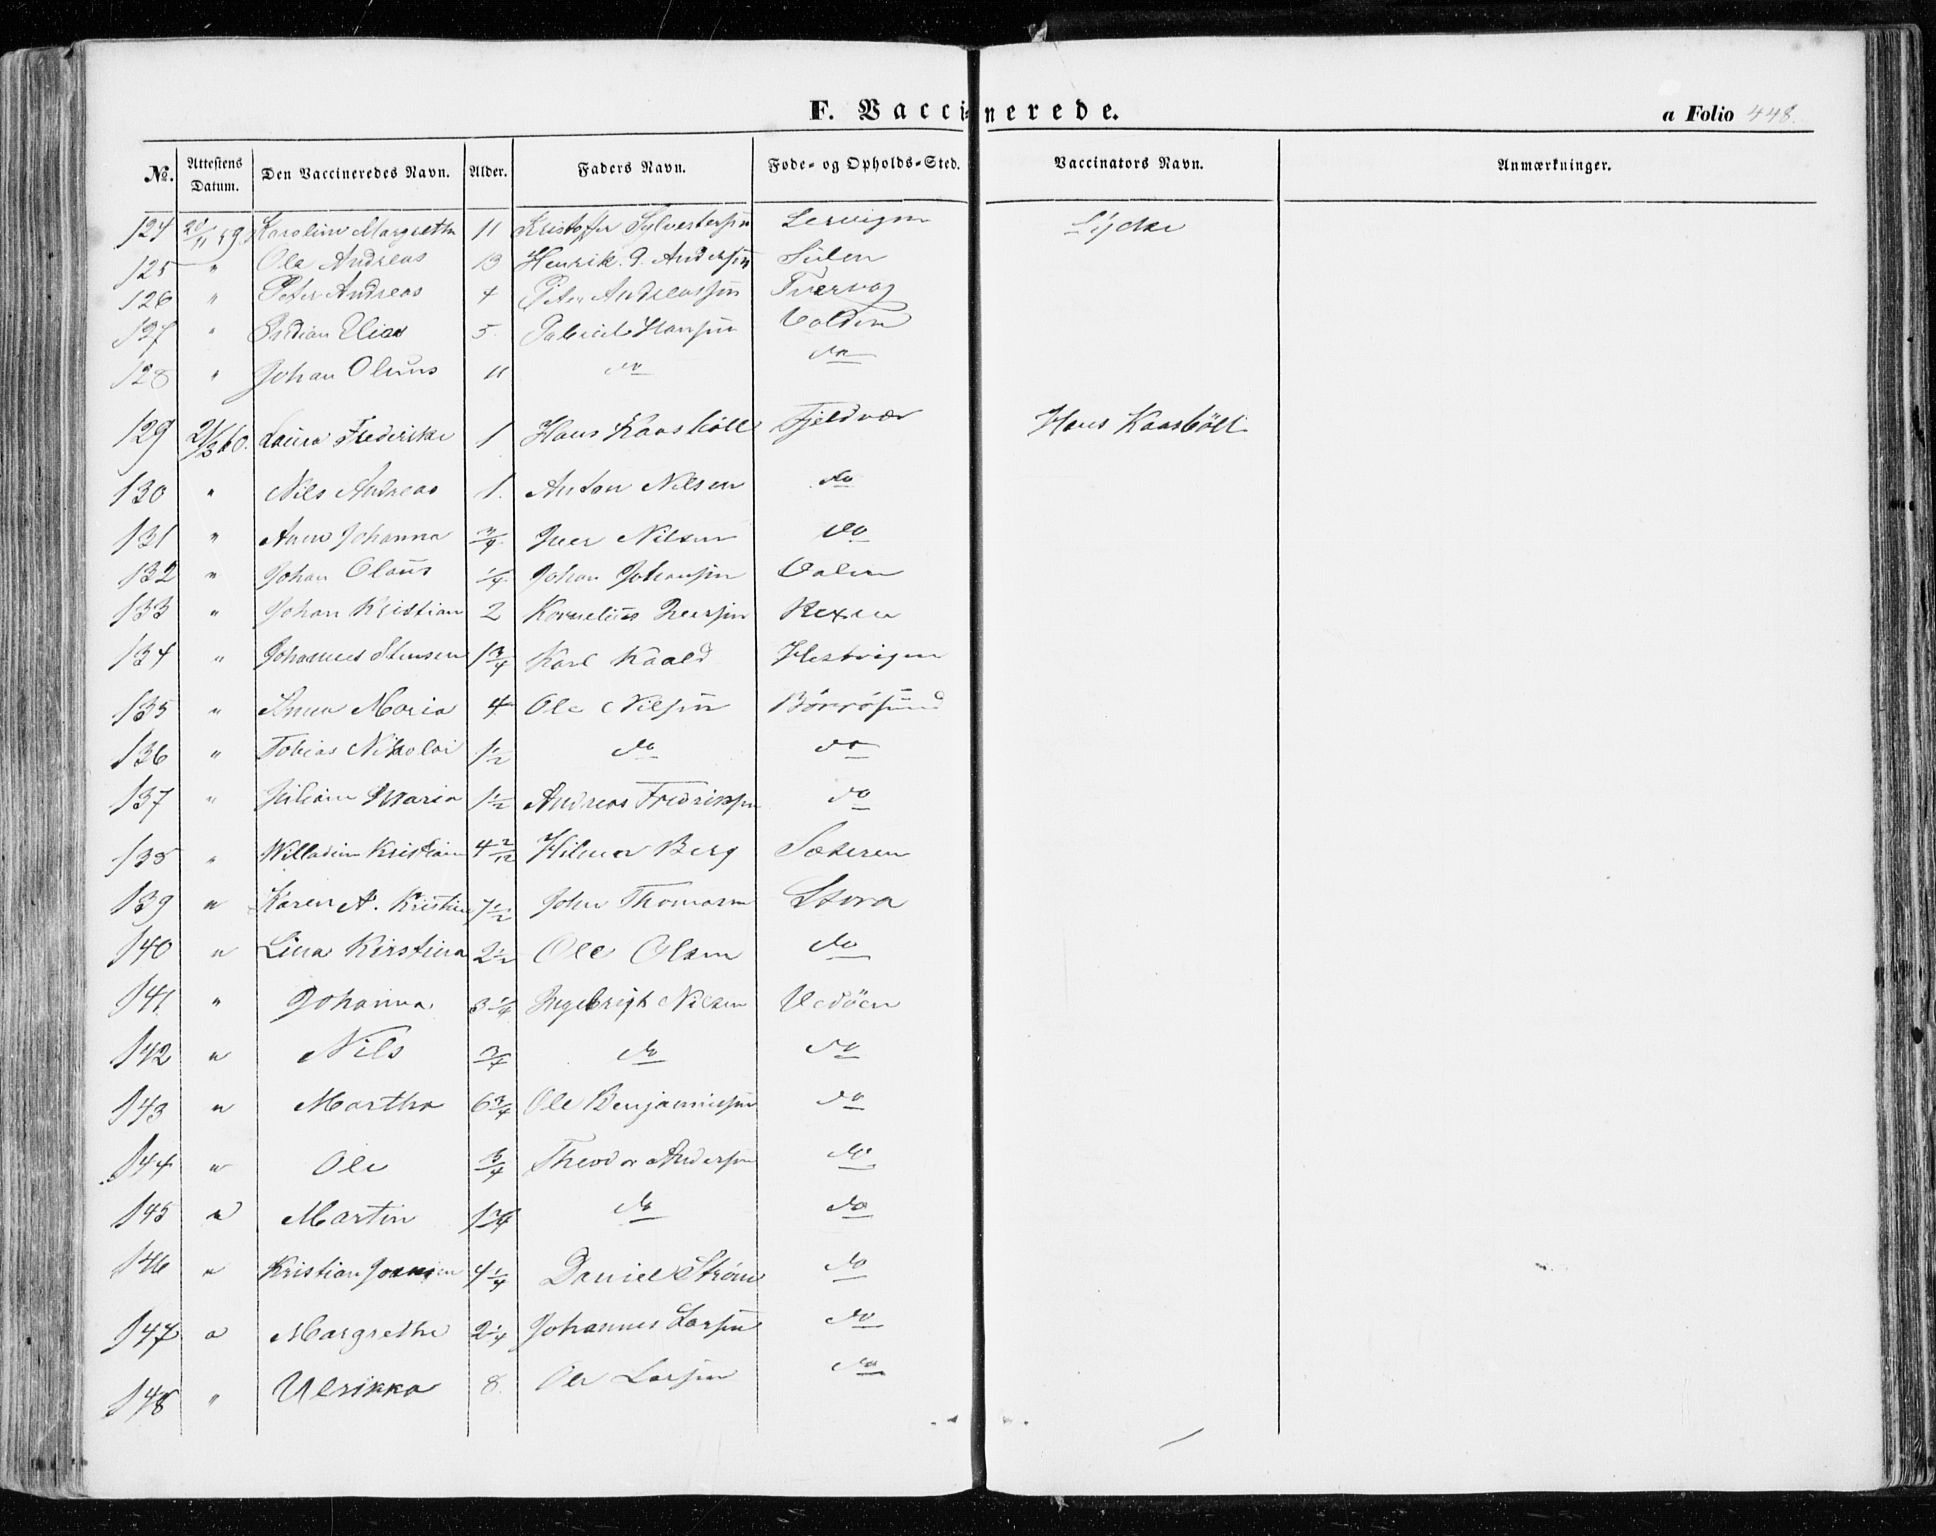 F. Vaccinerede.
a Folio 448.
No. Attestens Datum. Den Vaccineredes Navn. Alder. Faders Navn. Føde- og Opholds-Sted. Vaccinators Navn. Anmærkninger.
124 21/11 59 Karoline Margrethe 11 Kristoffer Sylvestersen Lervigen Lycke
125 " Ole Andreas 13 Henrik Andersen Sulen
126 " Peter Andreas 4 Peter Andreassen Tvervag
127 " Elias 5 Hansen Valden
128 " Johan Oluus 11 do do
129 21/3 60. Laura Frederike 1 Hans Kaasböll Fjeldvær Hans Kaasböll
130 " Nils Andreas 1. Anton Nilsen do
131 " Anne Johanna 3/4 Iver Nilsen do
132 " Johan Olaus 1/4 Johan Johansen Valen
133 " Johan Kristian 2 Kornelius Iversen
134 " Johannes Stensen 1 3/4 Karl Kaald Hestvigen
135 " Anna Maria 4 Ole Nilsen Börrösund
136 " Tobias Nikolai 1 1/2 do do
137 " Juliane Maria 1 1/2 Andreas Fredriksen do
138 " Kristian 4 2/12 Hilmer Berg Sæteren
139 " Karen A. Kristine 7 1/2 John Thomasen Stora
140 " Lina Kirstina 2 1/2 Ole Olsen do
141 " Johanna 3 1/4 Ingebrigt Nilsen Vedöen
142 " Nils 3/4 do do
143 " Martha 6 3/4 Ole Benjaminsen do
144 " Ole 3/4 Theodor Andersen do
145 " Martin 1 3/4 do do
146 " Kristian 4 1/4 Daniel Strøm do
147 " Margrethe 2 1/4 Johannes Larsen do
148 " Ulrikka 8 Ole Larsen do